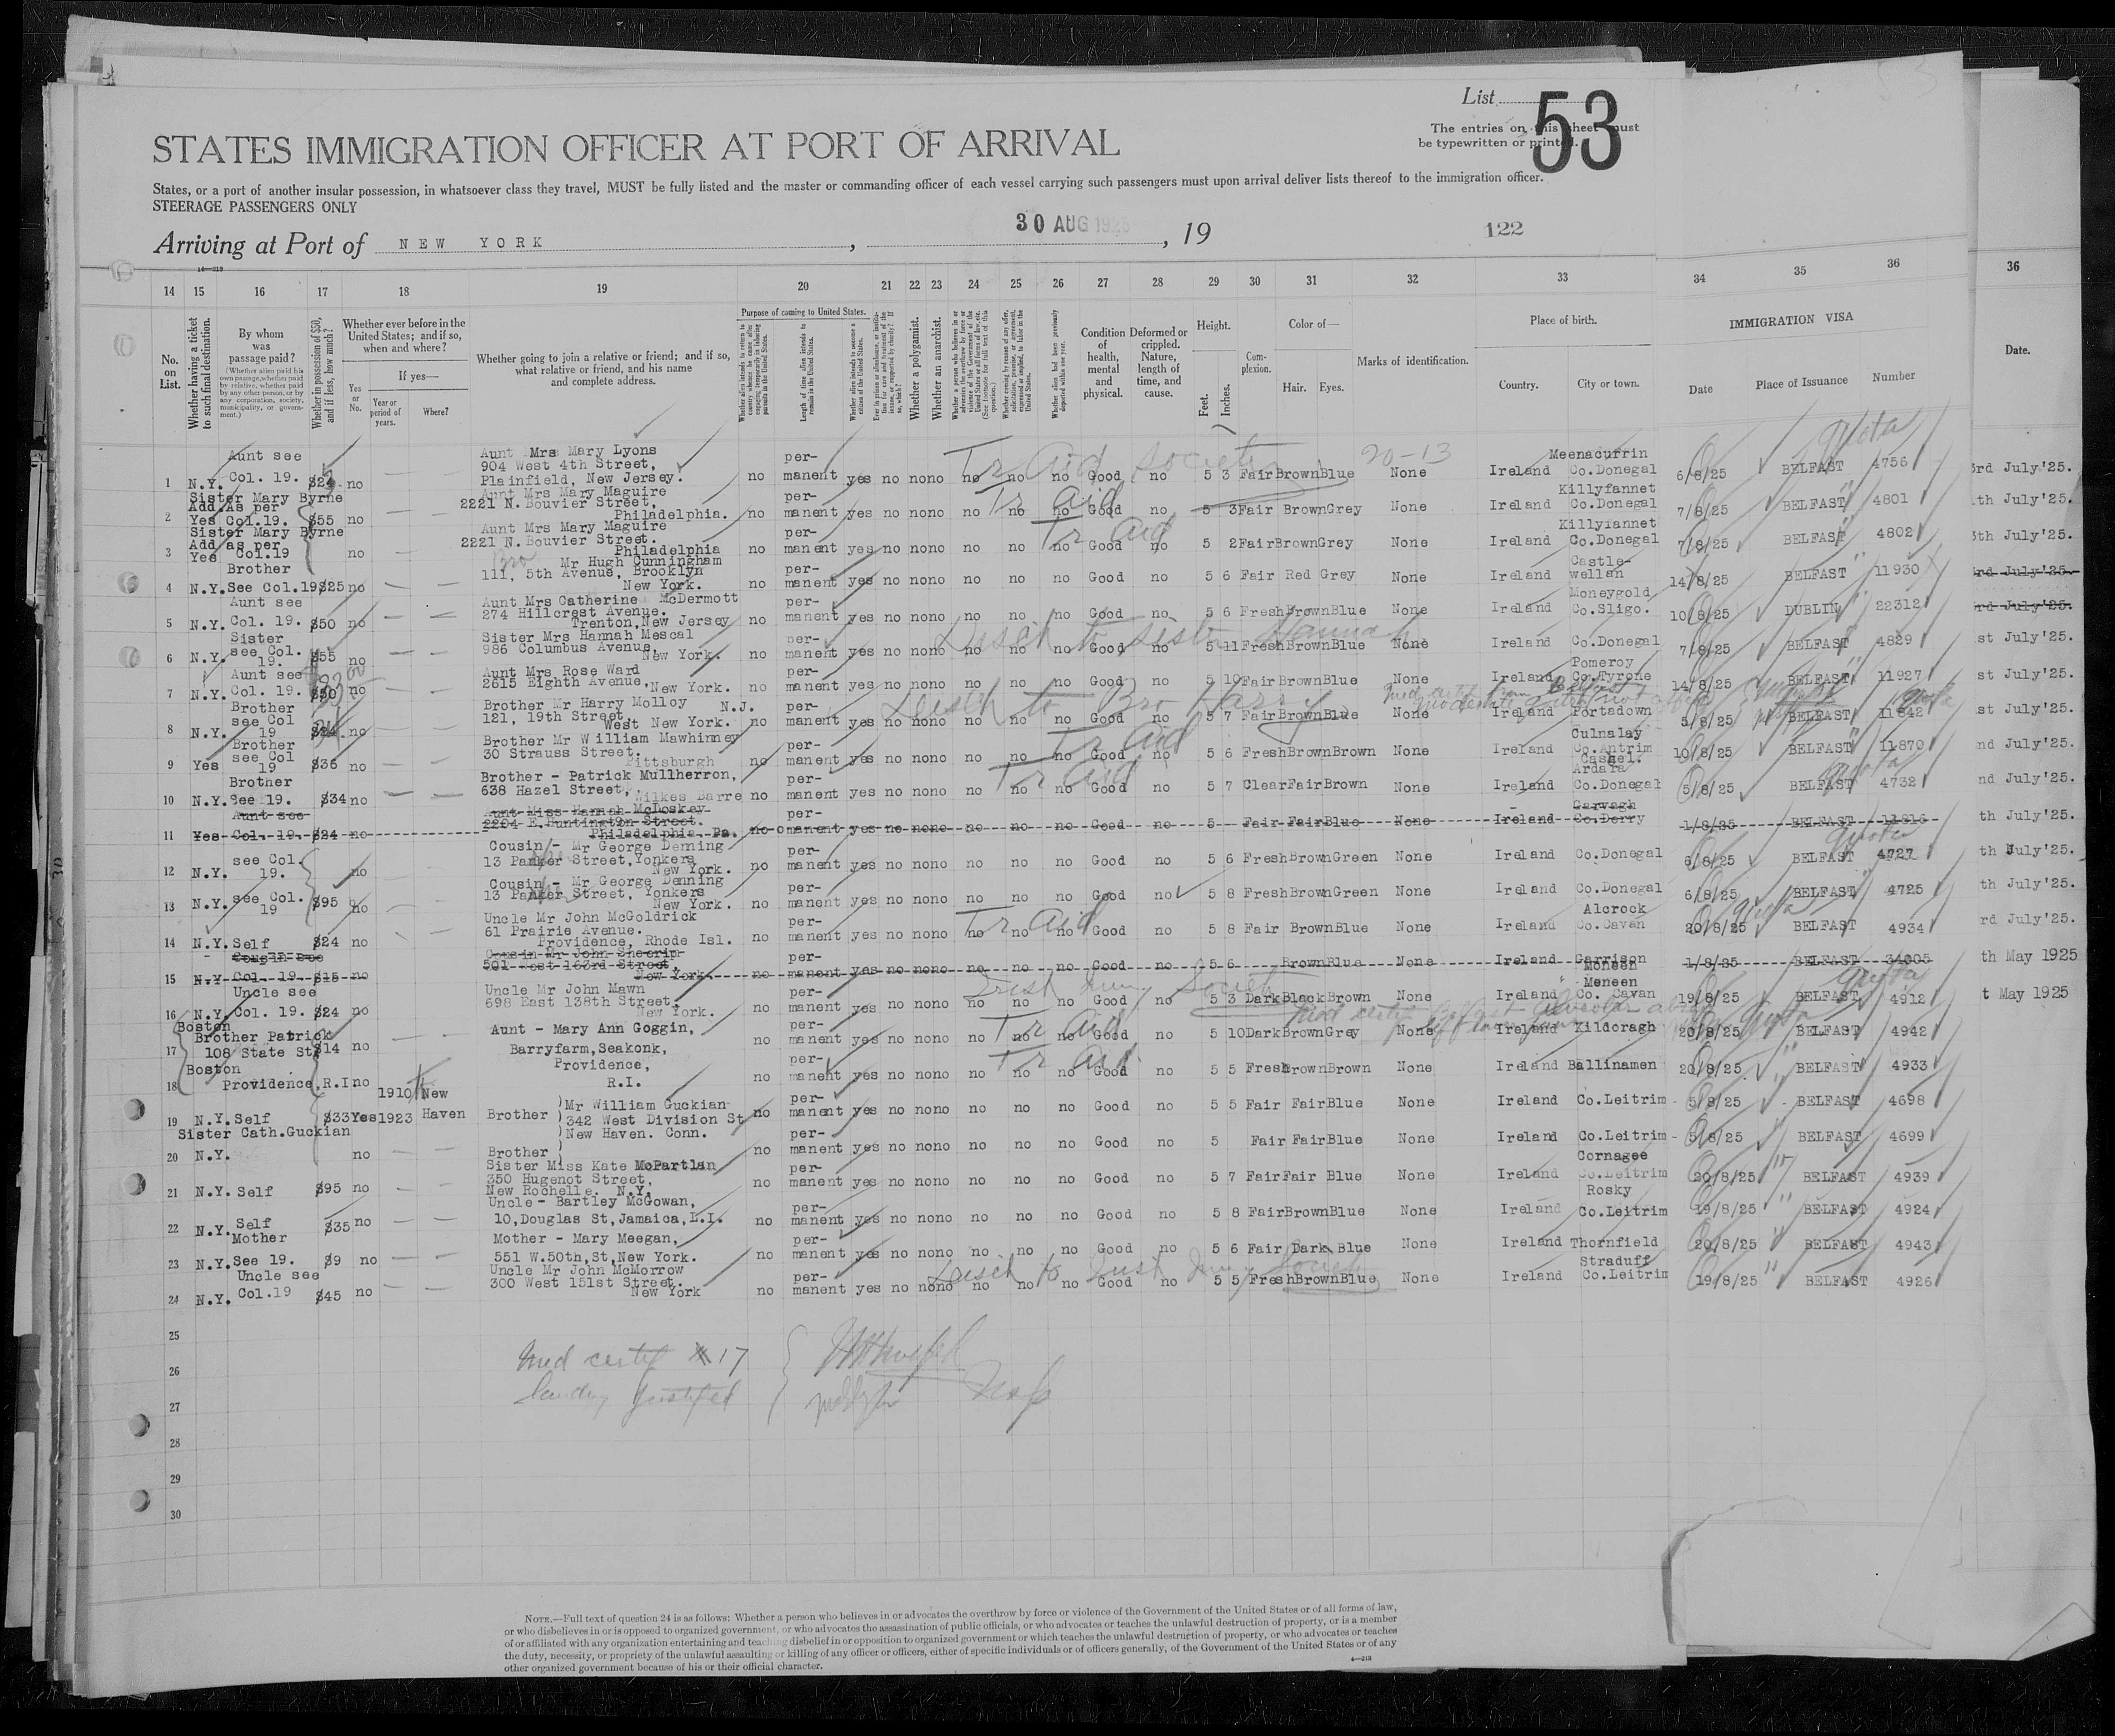 List
53
The entries on this sheet must
be typewritten or printed.
STATES IMMIGRATION OFFICER AT PORT OF ARRIVAL
States, or a port of another insular possession, in whatsoever class they travel, MUST be fully listed and the master or commanding officer of each vessel carrying such passengers must upon arrival deliver lists thereof to the immigration officer.
STEERAGE PASSENGERS ONLY
Arriving at Port of NEW YORK , 30 AUG 1925 , 19 122
14 15 16 17 18 19 20 21 22 23 24 25 26 27 28 29 30 31 32 33 34 35 36 36
No. on List.
Whether having a ticket to such final destination.
By whom was passage paid?
(Whether alien paid his own passage, whether paid by relative, whether paid by any other person, or by any corporation, society, municipality, or government.)
Whether in possession of $50, and if less, how much?
Whether ever before in the United States; and if so, when and where?
Yes or No.
If yes—
Year or period of years.
Where?
Whether going to join a relative or friend; and if so, what relative or friend, and his name and complete address.
Purpose of coming to United States.
Length of time alien intends to remain in the United States.
Whether a polygamist.
Whether an anarchist.
Condition of health, mental and physical.
Deformed or crippled. Nature, length of time, and cause.
Height.
Feet. Inches.
Complexion.
Color of—
Hair. Eyes.
Marks of identification.
Place of birth.
Country. City or town.
IMMIGRATION VISA
Date Place of Issuance Number
Date.
1 N.Y. Aunt see Col. 19. $24 no Aunt Mrs Mary Lyons 904 West 4th Street, Plainfield, New Jersey. no permanent yes no no no no no no Good no 5 3 Fair Brown Blue None Ireland Meenacurrin Co.Donegal 6/8/25 BELFAST 4756 3rd July'25.
2 Yes Sister Mary Byrne Add.As per Col.19. $55 no Aunt Mrs Mary Maguire 2221 N. Bouvier Street, Philadelphia. no permanent yes no no no no no no Good no 5 3 Fair Brown Grey None Ireland Killyfannet Co.Donegal 7/8/25 BELFAST 4801
3 Yes Sister Mary Byrne Add as per Col.19 no Aunt Mrs Mary Maguire 2221 N. Bouvier Street. Philadelphia no permanent yes no no no no no no Good no 5 2 Fair Brown Grey None Ireland Killyfannet Co.Donegal 7/8/25 BELFAST 4802
4 N.Y. Brother See Col.19 $25 no Bro Mr Hugh Cunningham 111, 5th Avenue, Brooklyn New York. no permanent yes no no no no no no Good no 5 6 Fair Red Grey None Ireland Castlewellan 14/8/25 BELFAST 11930 rd July'25.
5 N.Y. Aunt see Col. 19. $50 no Aunt Mrs Catherine McDermott 274 Hillcrest Avenue. Trenton, New Jersey no permanent yes no no no no no no Good no 5 6 Fresh Brown Blue None Ireland Moneygold Co.Sligo. 10/8/25 DUBLIN 22312 rd July'25.
6 N.Y. Sister see Col. 19. $55 no Sister Mrs Hannah Mescal 986 Columbus Avenue, New York. no permanent yes no no no no no no Good no 5 11 Fresh Brown Blue None Ireland Co.Donegal 7/8/25 BELFAST 4829 st July'25.
7 N.Y. Aunt see Col. 19. $50 no Aunt Mrs Rose Ward 2615 Eighth Avenue, New York. no permanent yes no no no no no no Good no 5 10 Fair Brown Blue None Ireland Pomeroy Co.Tyrone 14/8/25 BELFAST 11927 st July'25.
8 N.Y. Brother see Col 19 $24 no Brother Mr Harry Molloy N.J. 121, 19th Street, West New York. no permanent yes no no no no no no Good no 5 7 Fair Brown Blue None Ireland Portadown 4/8/25 BELFAST 11842 st July'25.
9 Yes Brother see Col 19 $35 no Brother Mr William Mawhinney 30 Strauss Street. Pittsburgh no permanent yes no no no no no no Good no 5 6 Fresh Brown Brown None Ireland Culnalay Co.Antrim 10/8/25 BELFAST 11870 nd July'25.
10 N.Y. Brother See 19. $34 no Brother - Patrick Mullherron, 638 Hazel Street, Wilkes Barre no permanent yes no no no no no no Good no 5 7 Clear Fair Brown None Ireland Cashel. Ardara Co.Donegal 5/8/25 BELFAST 4732 nd July'25.
11 Yes Aunt see Col. 19. $24 no Aunt Miss Hannah McCloskey 2204 E.Huntington Street. Philadelphia Pa. no permanent yes no no no no no no Good no 5 Fair Fair Blue None Ireland Garvagh Co.Derry 1/8/25 BELFAST 11816 th July'25.
12 N.Y. see Col. 19. no Cousin - Mr George Denning 13 Parker Street, Yonkers New York. no permanent yes no no no no no no Good no 5 6 Fresh Brown Green None Ireland Co.Donegal 6/8/25 BELFAST 4727 th July'25.
13 N.Y. see Col. 19 $95 no Cousin - Mr George Denning 13 Parker Street, Yonkers New York. no permanent yes no no no no no no Good no 5 8 Fresh Brown Green None Ireland Co.Donegal 6/8/25 BELFAST 4725 th July'25.
14 N.Y. Self $24 no Uncle Mr John McGoldrick 61 Prairie Avenue. Providence, Rhode Isl. no permanent yes no no no no no no Good no 5 8 Fair Brown Blue None Ireland Alcrock Co.Cavan 20/8/25 BELFAST 4934 rd July'25.
15 N.Y. Cousin See Col. 19 $15 no Cousin Mr John 501 West 163rd Street, New York. no permanent yes no no no no no no Good no 5 6 Brown Blue None Ireland Garrison 1/8/25 BELFAST 34005 th May 1925
16 N.Y. Uncle see Col. 19. $24 no Uncle Mr John Mawn 698 East 138th Street. New York. no permanent yes no no no no no no Good no 5 3 Dark Black Brown None Ireland Moneen Meneen Co. Cavan 19/8/25 BELFAST 4912 t May 1925
17 Boston Brother Patrick 108 State St $14 no Aunt - Mary Ann Goggin, Barryfarm, Seakonk, no permanent yes no no no no no no Good no 5 10 Dark Brown Grey None Ireland Kildoragh 20/8/25 BELFAST 4942
18 Boston Providence,R.I no Providence, R.I. no permanent yes no no no no no no Good no 5 5 Fresh Brown Brown None Ireland Ballinamen 20/8/25 BELFAST 4933
19 N.Y. Self $33 Yes 1910 1923 New Haven Brother Mr William Guckian 342 West Division St New Haven. Conn. no permanent yes no no no no no no Good no 5 5 Fair Fair Blue None Ireland Co.Leitrim 5/8/25 BELFAST 4698
20 N.Y. Sister Cath.Guckian no Brother no permanent yes no no no no no no Good no 5 Fair Fair Blue None Ireland Co.Leitrim 5/8/25 BELFAST 4699
21 N.Y. Self $95 no Sister Miss Kate McPartlan 350 Hugenot Street, New Rochelle. N.Y. no permanent yes no no no no no no Good no 5 7 Fair Fair Blue None Ireland Cornagee Co.Leitrim 20/8/25 BELFAST 4939
22 N.Y. Self $35 no Uncle - Bartley McGowan, 10,Douglas St,Jamaica,L.I. no permanent yes no no no no no no Good no 5 8 Fair Brown Blue None Ireland Rosky Co.Leitrim 19/8/25 BELFAST 4924
23 N.Y. Mother See 19. $9 no Mother - Mary Meegan, 551 W.50th,St,New York. no permanent yes no no no no no no Good no 5 6 Fair Dark Blue None Ireland Thornfield 20/8/25 BELFAST 4943
24 N.Y. Uncle see Col.19 $45 no Uncle Mr John McMorrow 300 West 151st Street. New York no permanent yes no no no no no no Good no 5 5 Fresh Brown Blue None Ireland Straduff Co.Leitrim 19/8/25 BELFAST 4926
25
26 Med certif 17
27 landing justified
28
29
30
NOTE.—Full text of question 24 is as follows: Whether a person who believes in or advocates the overthrow by force or violence of the Government of the United States or of all forms of law,
or who disbelieves in or is opposed to organized government, or who advocates the assassination of public officials, or who advocates or teaches the unlawful destruction of property, or is a member
of or affiliated with any organization entertaining and teaching disbelief in or opposition to organized government or which teaches the unlawful destruction of property, or who advocates or teaches
the duty, necessity, or propriety of the unlawful assaulting or killing of any officer or officers, either of specific individuals or of officers generally, of the Government of the United States or of any
other organized government because of his or their official character.